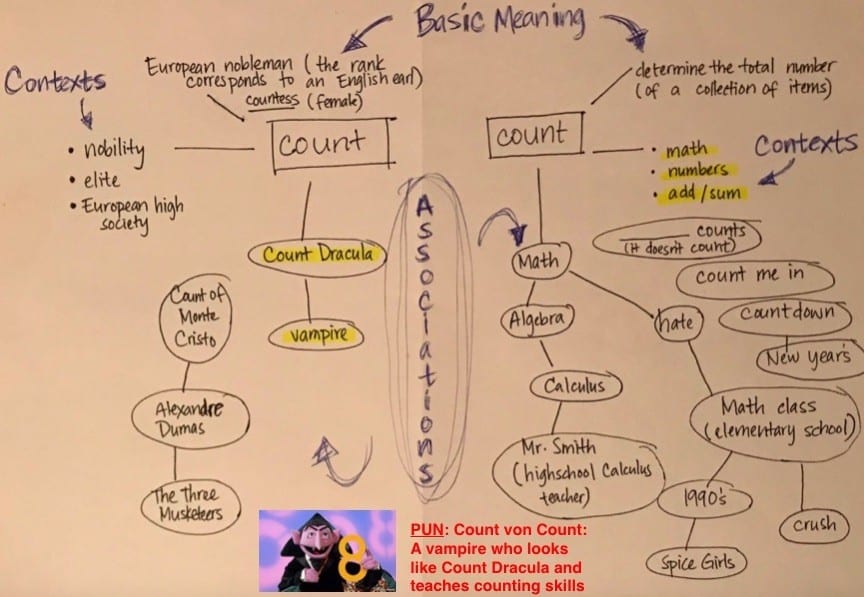 Basic Meaning
European nobleman (the rank
corresponds to an English earl)
countess (female)
determine the total number
(of a collection of items)
Contexts
count
count
• nobility
• elite
• European high
society
• math
• numbers
• add/sum
Contexts
Associations
Count Dracula
vampire
Count of
Monte
Cristo
Alexandre
Dumas
The Three
Musketeers
Math
Algebra
Calculus
Mr. Smith
(highschool Calculus
teacher)
hate
Math class
(elementary school)
1990's
Spice Girls
crush
_______ counts
(It doesn't count)
count me in
Countdown
New year's
8
PUN: Count von Count:
A vampire who looks
like Count Dracula and
teaches counting skills